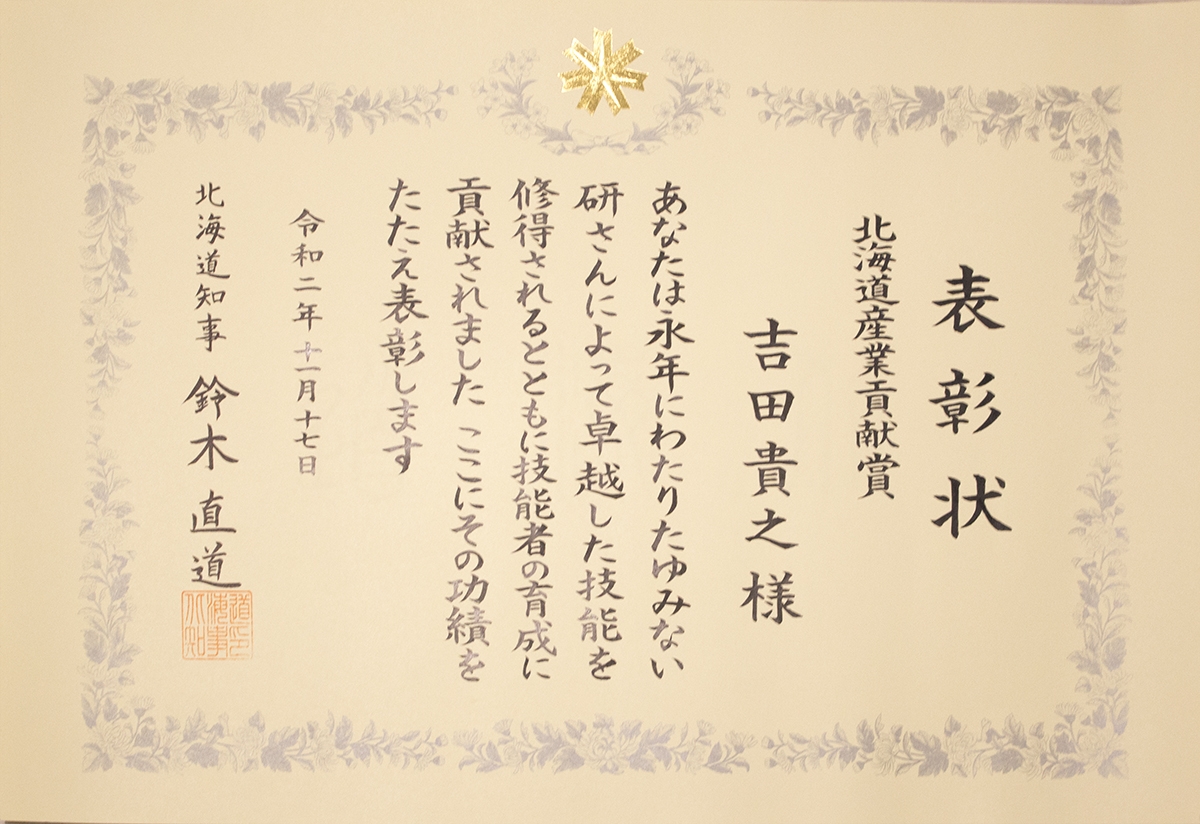 表彰状
北海道産業貢献賞
吉田貴之様
あなたは永年にわたりたゆみない
研さんによって卓越した技能を
修得されるとともに技能者の育成に
貢献されました ここにその功績を
たたえ表彰します
令和二年十一月十七日
北海道知事 鈴木直道